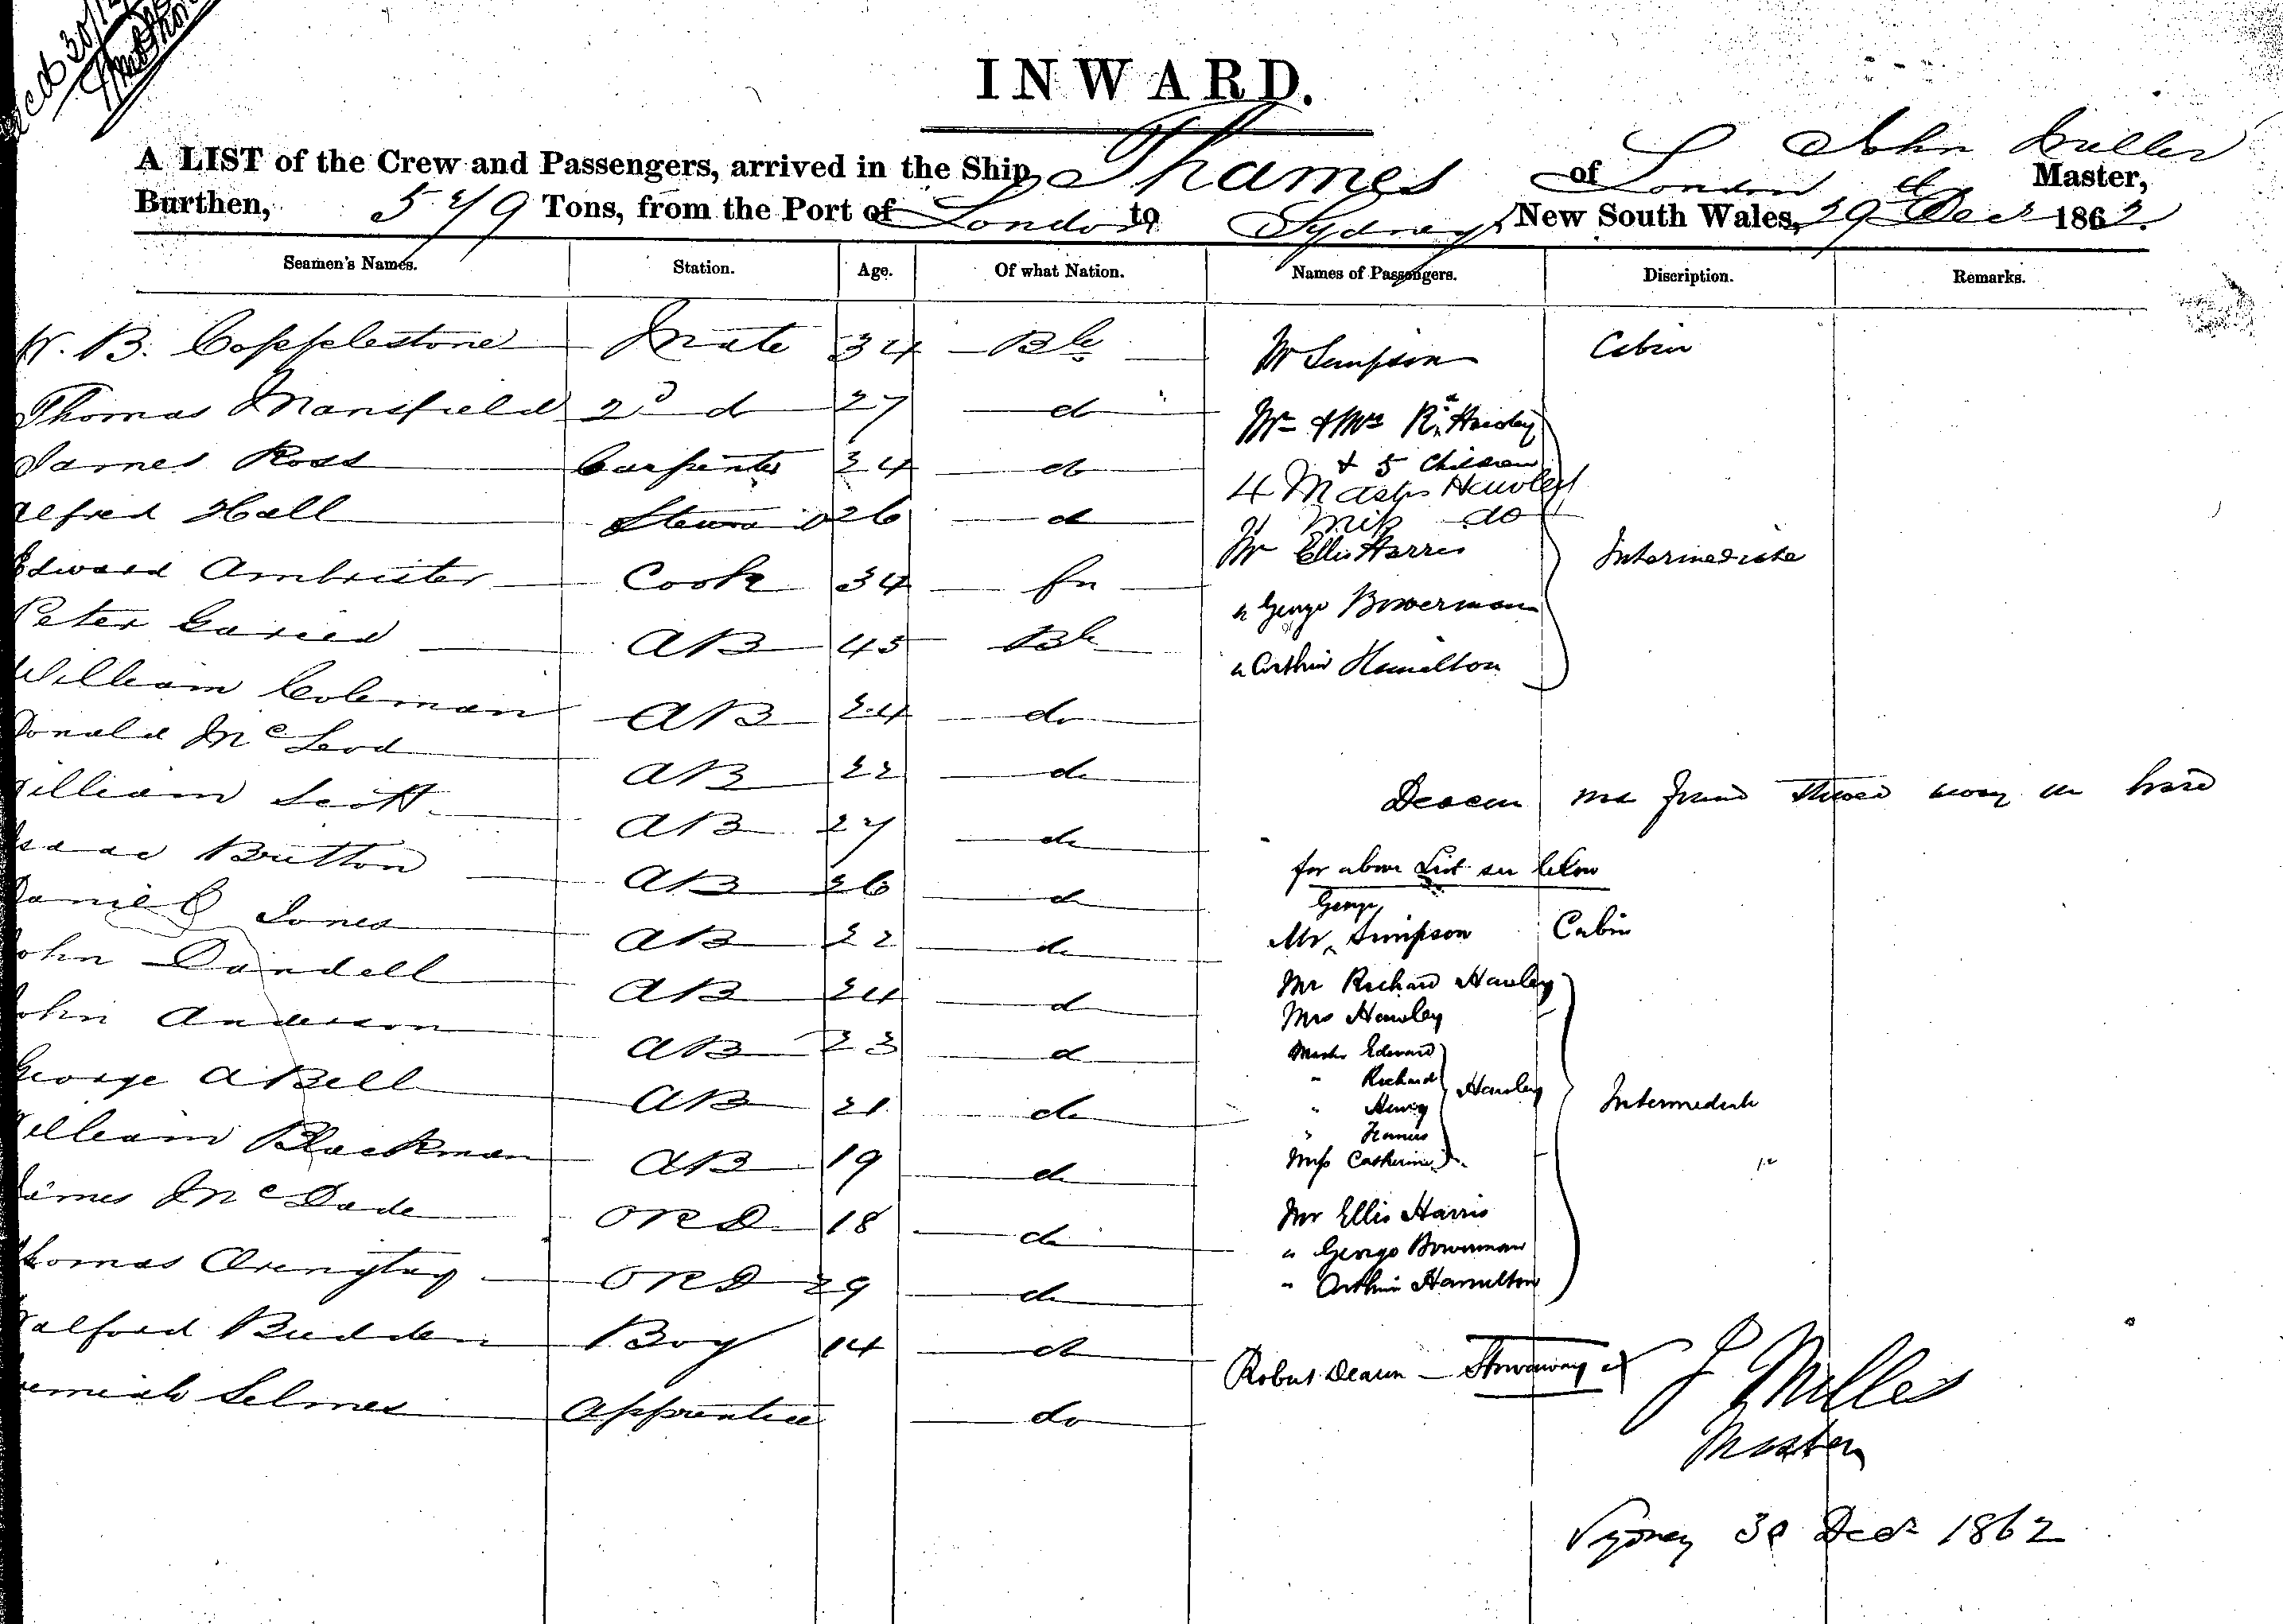 INWARD.
A LIST of the Crew and Passengers, arrived in the Ship Thames of London John Miller Master,
Burthen, Tons, from the Port of London to Sydney New South Wales, 29 Decr 1862.
Seamen's Names. Station. Age. Of what Nation. Names of Passengers. Discription. Remarks.
W. B. Copplestone Mate 34 Mr Simpson Cabin
Thomas Mansfield 2d d 27 d Mr & Mrs Rd Hawley
& 5 Children
James Ross Carpenter 24 do 4 Mastrs Hawley
Alfred Hall Steward 26 d Miss do
Edward Ambrister Cook 34 fn Mr Ellis Harris Intermediate
Peter AB 45 " George Bowerman
William Coleman AB 24 do " Arthur Hamilton
Donald McLeod AB 22 do
William Scott AB 27 do Deacon was found stowed away on board
Isaac Britton AB 26 d for above List see below
Daniel Jones AB 22 do Mr George Simpson Cabin
John Dandell AB 24 d Mr Richard Hawley
Mrs Hawley
John Anderson AB 23 d Master Edward
" Richard Hawley
George A Bell AB 21 do " Henry Intermediate
" Francis
William Blackman AB 19 do Miss Catherine
James McDade ORD 18 do Mr Ellis Harris
" George Bowerman
Thomas ORD 29 do " Arthur Hamilton
Budden Boy 14 do Robert Deacon — Stowaway
Selmes Apprentice do
J Miller
Master
Sydney 30 Decr 1862